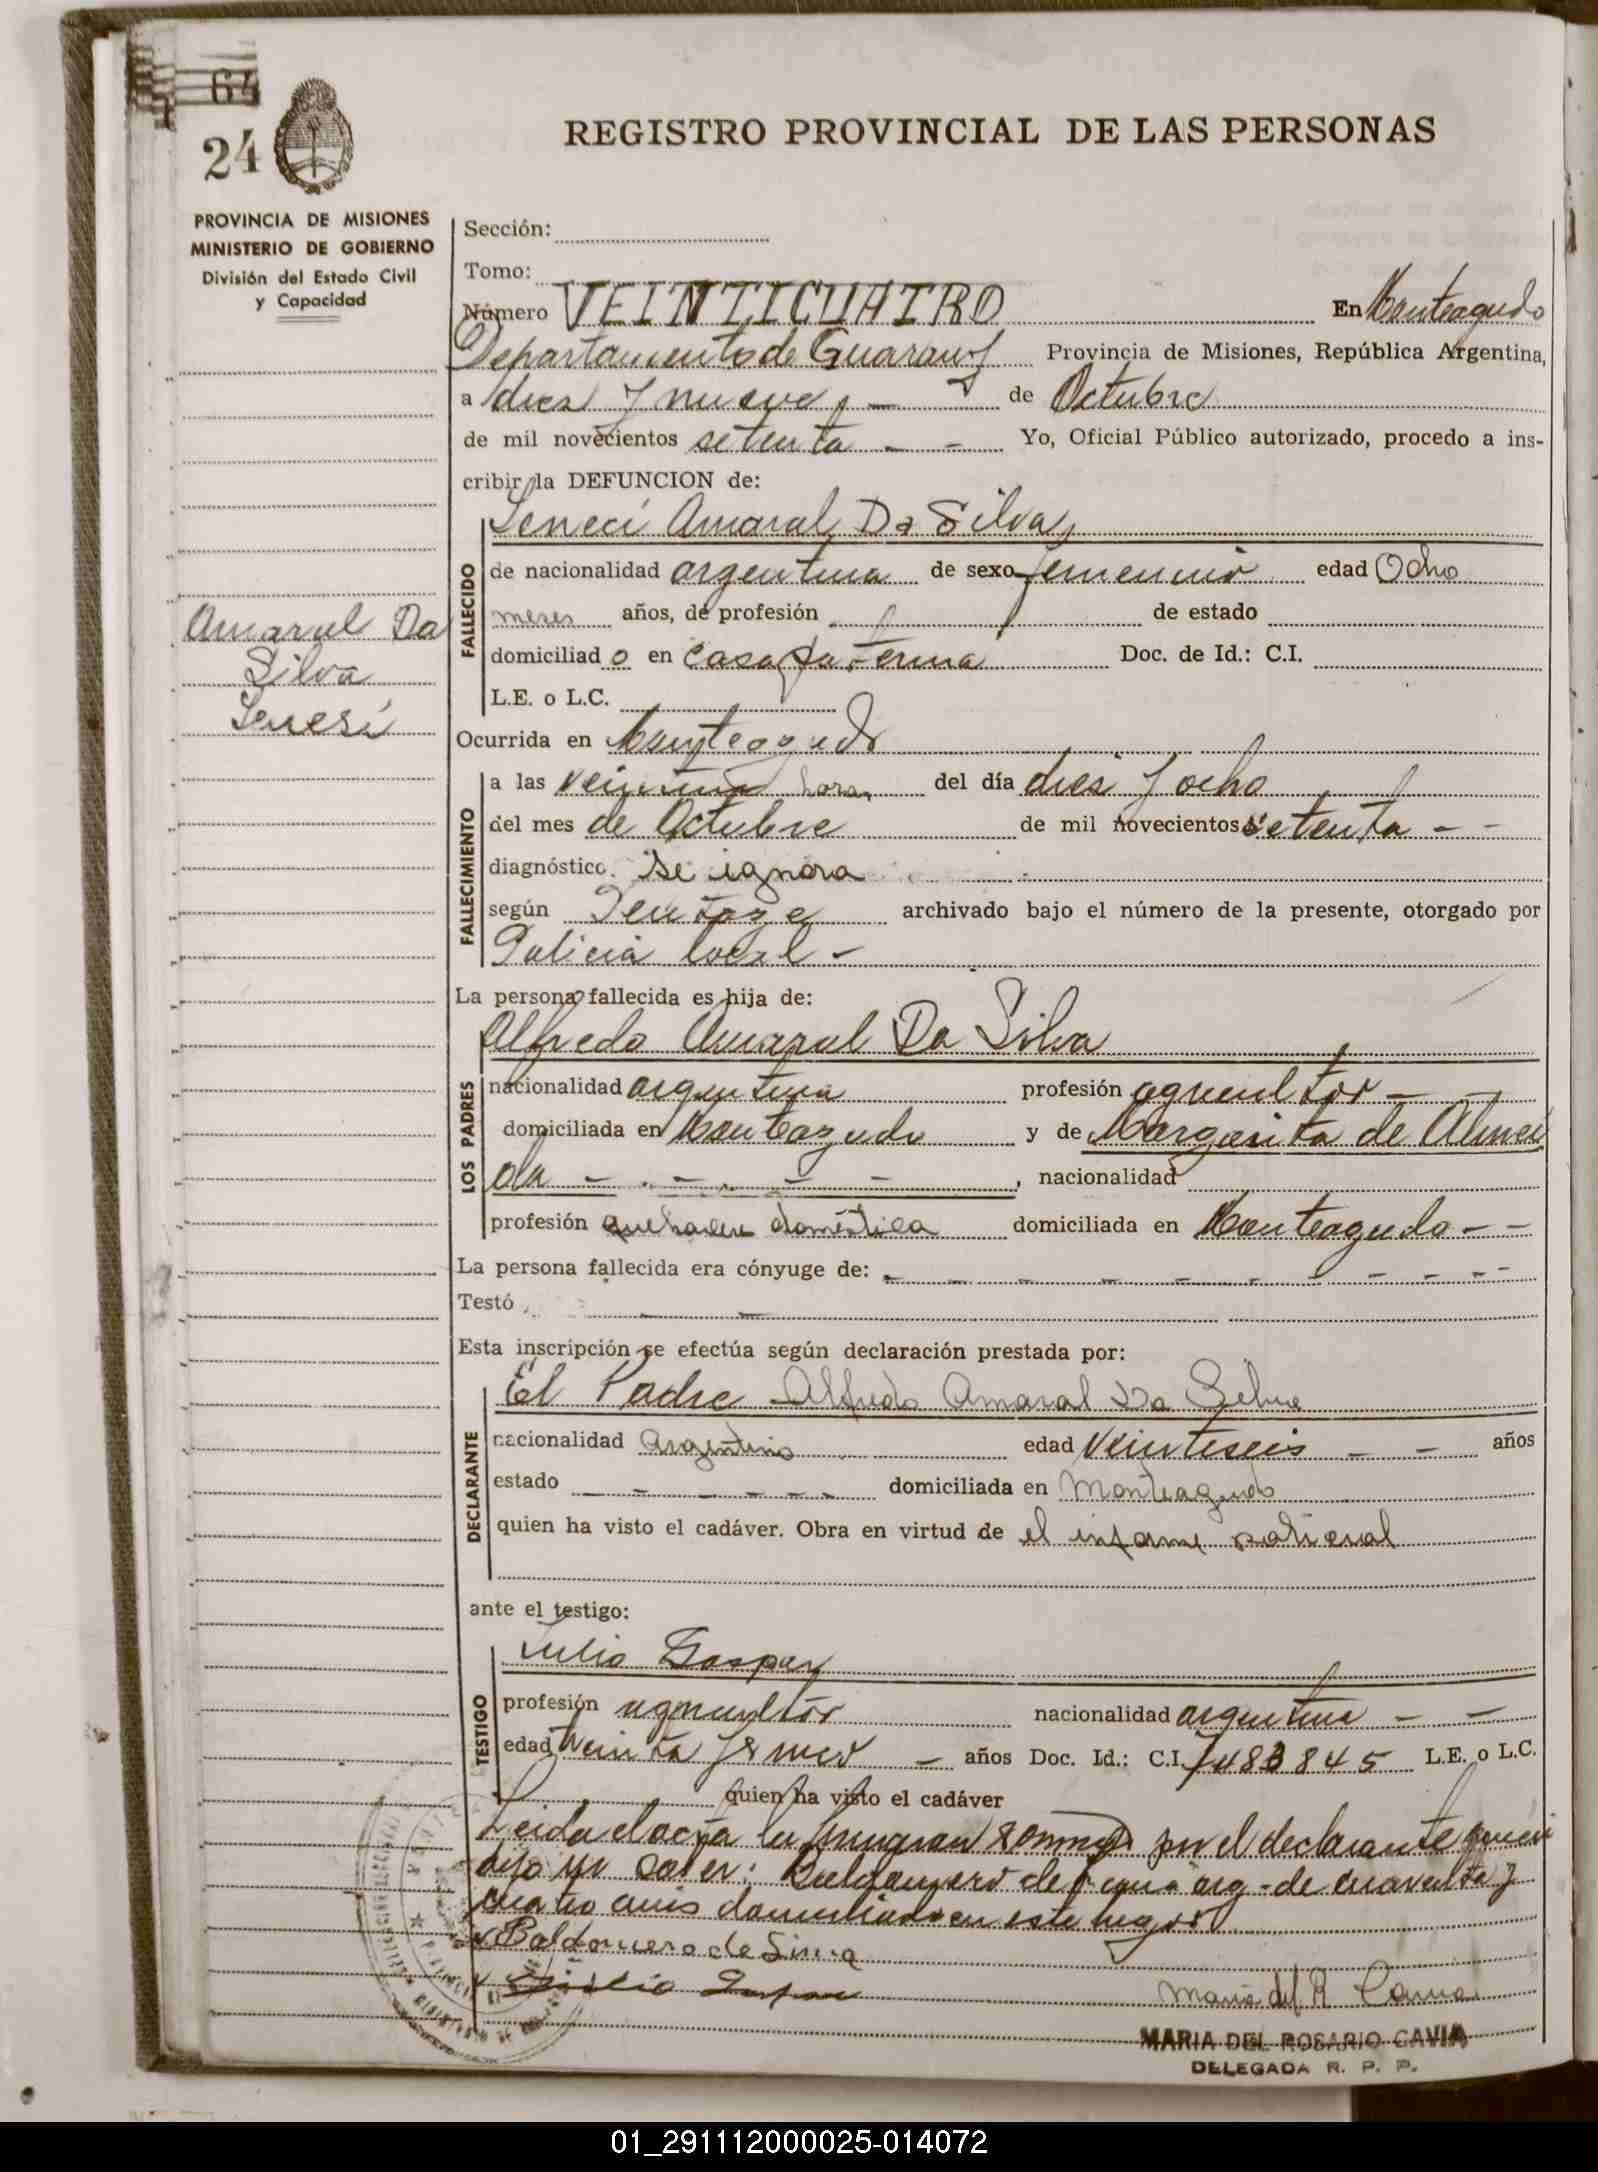 64
24
REGISTRO PROVINCIAL DE LAS PERSONAS
PROVINCIA DE MISIONES
MINISTERIO DE GOBIERNO
División del Estado Civil
y Capacidad
Sección:
Tomo:
Número VEINTICUATRO En Monteagudo
Departamento de Guaraní Provincia de Misiones, República Argentina,
a dies y nueve de Octubre
de mil novecientos setenta - - Yo, Oficial Público autorizado, procedo a ins-
cribir la DEFUNCION de:
Amaral Da Silva
FALLECIDO
de nacionalidad argentina de sexo femenino edad Ocho
meses años, de profesión de estado
domiciliado en casa paterna Doc. de Id.: C.I.
L.E. o L.C.
Amaral Da
Silva
Ocurrida en Monteagudo
FALLECIMIENTO
a las veintiuna horas del día dies y ocho
del mes de Octubre de mil novecientos setenta - -
diagnóstico. se ignora
según archivado bajo el número de la presente, otorgado por
Policia local -
La persona fallecida es hija de:
Alfredo Amaral Da Silva
LOS PADRES
nacionalidad argentina profesión agricultor - -
domiciliada en Monteagudo y de Margarita de Almei
da - - - - , nacionalidad
profesión quehacer doméstica domiciliada en Monteagudo - -
La persona fallecida era cónyuge de: - - - - - - - - - -
Testó - -
Esta inscripción se efectúa según declaración prestada por:
El Padre Alfredo Amaral Da Silva
DECLARANTE
nacionalidad Argentino edad veintiseis - - años
estado - - - - - - domiciliada en Monteagudo
quien ha visto el cadáver. Obra en virtud de el informe policial
ante el testigo:
Julio Gaspar
TESTIGO
profesión agricultor nacionalidad argentina - -
edad años Doc. Id.: C.I. 7483845 L.E. o L.C.
quien ha visto el cadáver
Leida el acta la firmaron conmigo por el declarante quien
dijo no saber: Baldomero de Lima arg - de cuarenta y
cuatro años domiciliado en este lugar
Baldomero de Lima
Maria del R Cavia
MARIA DEL ROSARIO CAVIA
DELEGADA R. P. P.
01_291112000025-014072